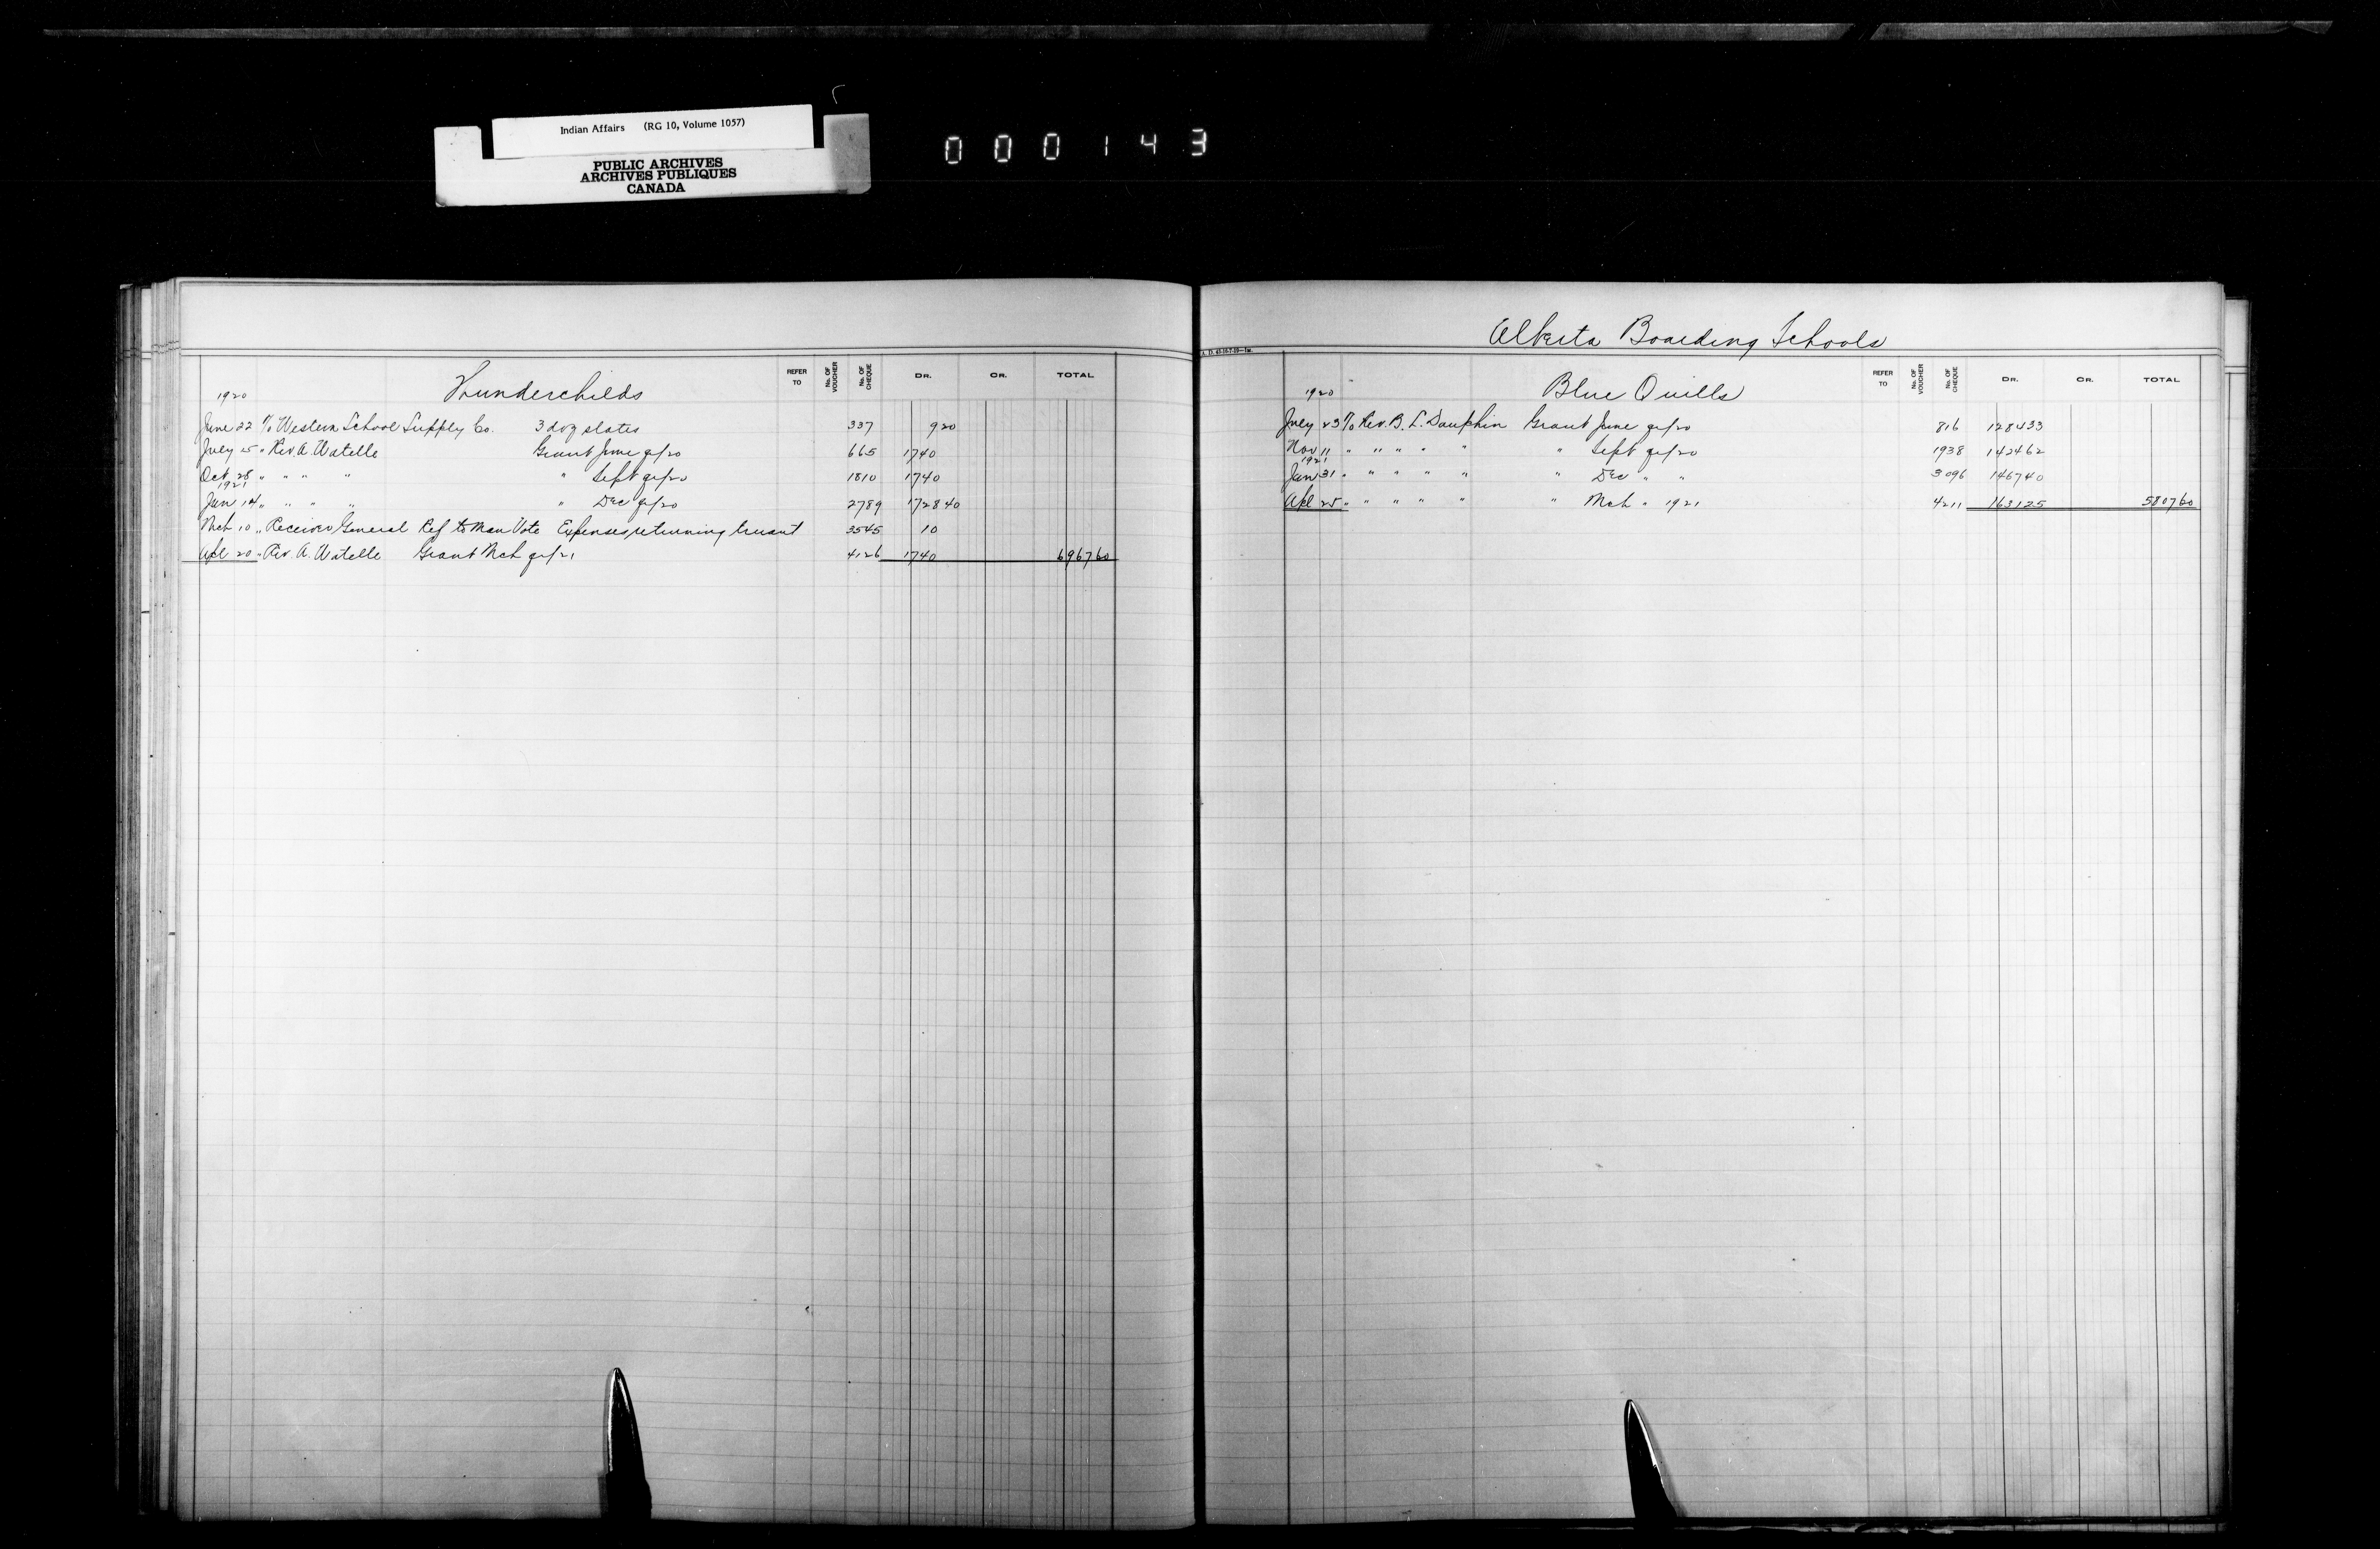 Indian Affairs (RG 10, Volume 1057)
PUBLIC ARCHIVES
ARCHIVES PUBLIQUES
CANADA
000143
Thunderchilds
REFER TO No. OF VOUCHER No. OF CHEQUE DR. CR. TOTAL
1920
June 22 % Western School Supply Co. 3 doz slates 337 9 20
July 15 " Rev. A. Watelle Grant June qr/20 665 1740
Oct 28 " " " " " Sept qr/20 1810 1740
1921
Jan 14 " " " " " Dec qr/20 2789 1728 40
Mch 10 " Receiver General Ref to Man Vote Expenses returning truant 3545 10
Apl 20 " Rev. A. Watelle Grant Mch qr/21 4126 1740 6967 60
Alberta Boarding Schools
I. A. D. 43-10-7-19—1m.
Blue Quills
REFER TO No. OF VOUCHER No. OF CHEQUE DR. CR. TOTAL
1920
July 23 % Rev. B. L. Dauphin Grant June qr/20 816 1284 33
Nov 11 " " " " " " Sept qr/20 1938 1424 62
1921
Jan 31 " " " " " " Dec " " 3096 1467 40
Apl 25 " " " " " " Mch " 1921 4211 1631 25 5807 60